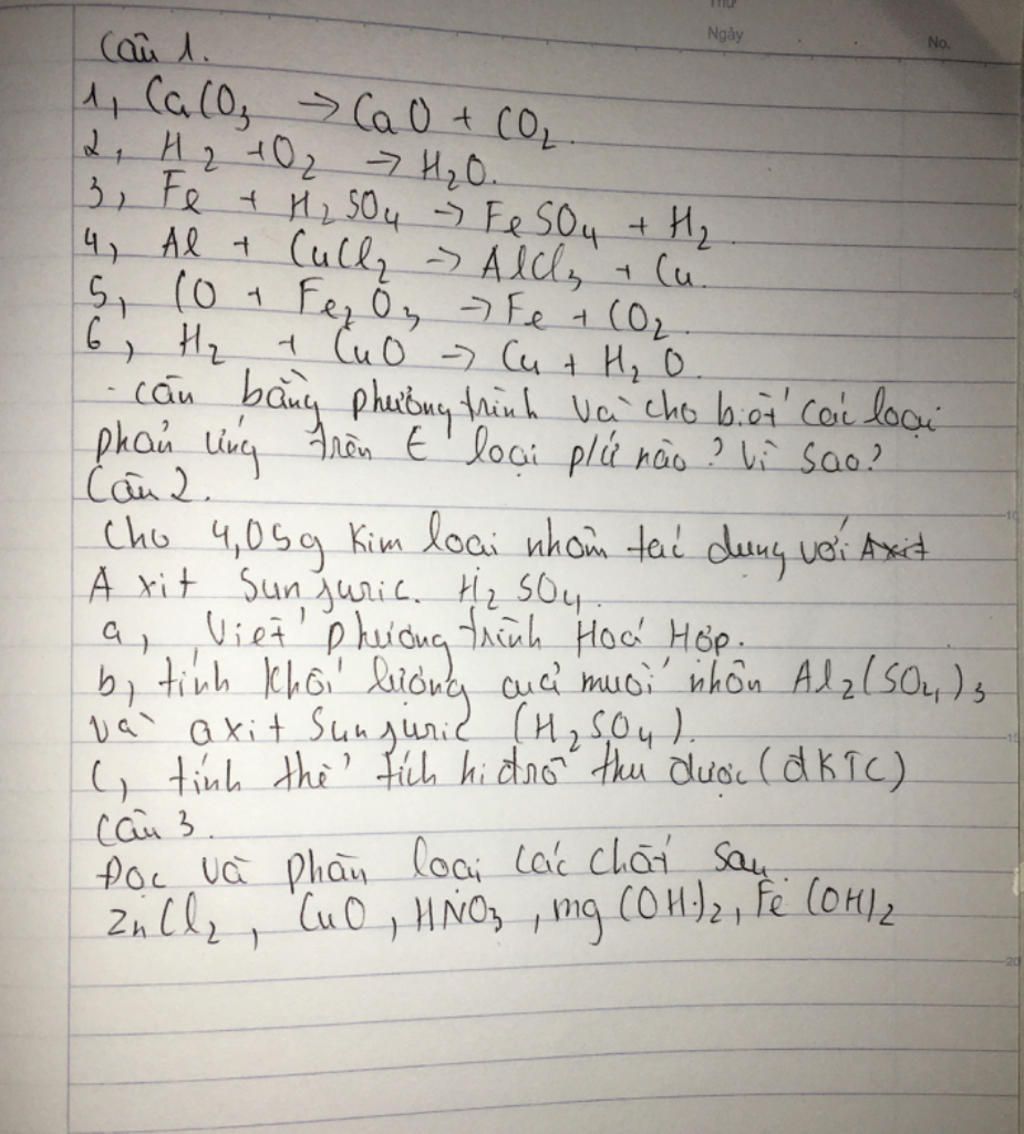 Thứ
Ngày No.
Câu 1.
1, CaCO3 → CaO + CO2.
2, H2 + O2 → H2O.
3, Fe + H2SO4 → FeSO4 + H2.
4, Al + CuCl2 → AlCl3 + Cu.
5, CO + Fe2O3 → Fe + CO2.
6, H2 + CuO → Cu + H2O.
- cân bằng phương trình và cho biết các loại
phản ứng trên E loại p/ứ nào? Vì sao?
Câu 2.
Cho 4,05g Kim loại nhôm tác dụng với Axit
Axit Sunfuric. H2SO4.
a, Viết phương trình Hoá Hợp.
b, tính khối lượng cuả muối nhôn Al2(SO4)3
và axit Sunfuric (H2SO4).
c, tính thể tích hiđrô thu được (đKTC)
Câu 3.
Đọc và phân loại các chất sau.
ZnCl2, CuO, HNO3, mg(OH)2, Fe(OH)2
10
15
20